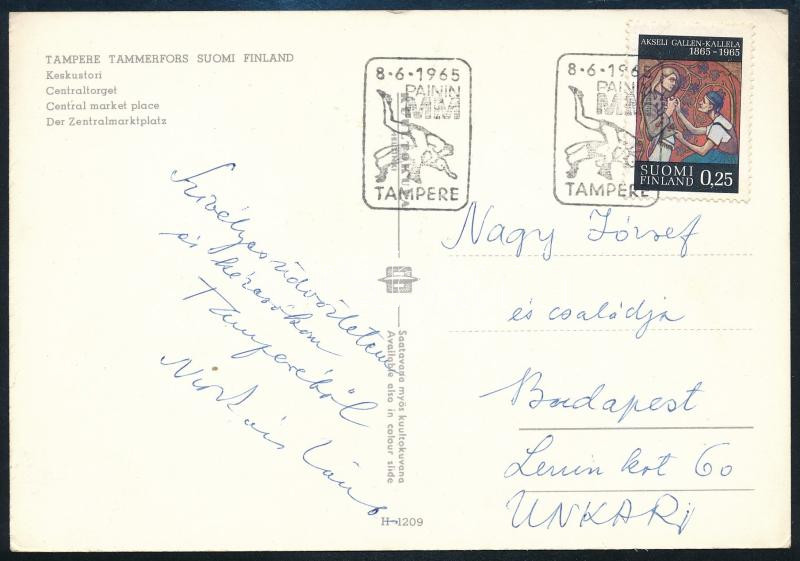 TAMPERE TAMMERFORS SUOMI FINLAND
Keskustori
Centraltorget
Central market place
Der Zentralmarktplatz
8-6-1965
PAININ
MM
TAMPERE
8-6-1965
PAININ
MM
TAMPERE
AKSELI GALLEN-KALLELA
1865-1965
SUOMI
FINLAND 0,25
Szivélyes üdvözletem
és kézcsókom
Tamperéből
Nagy József
és családja
Budapest
Lenin krt 60
UNKARI
Saatavana myös kuultokuvana
Available also in colour slide
H-1209